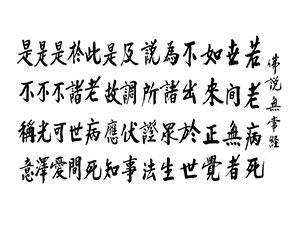 佛說無常經
若老病死
世間無者
如來正覺
不出於世
為諸眾生
說所證法
及調伏事
是故應知
此老病死
於諸世間
是不可愛
是不光澤
是不稱意